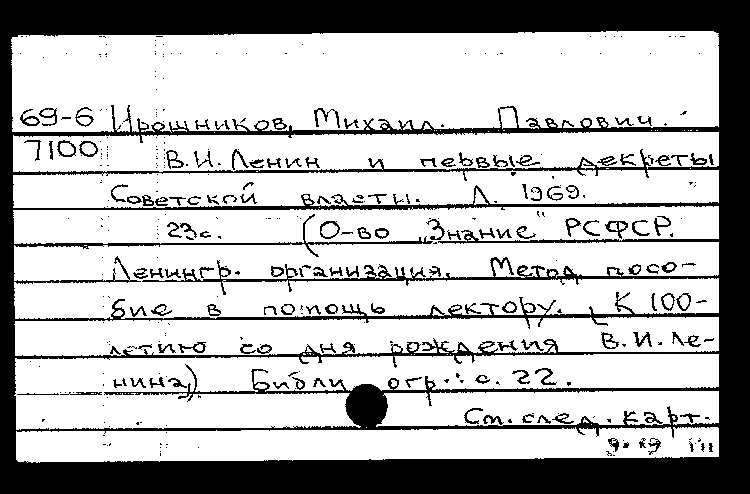 69-6 Ирошников, Михаил. Павлович.
7100 В.И. Ленин и первые декреты
Советской власти. Л. 1969.
23с. (О-во „Знание" РСФСР.
Ленингр. организация. Метод. посо-
бие в помощь лектору. К 100-
летию со дня рождения В.И. Ле-
нина). Библиогр.: с. 22.
См. след. карт.